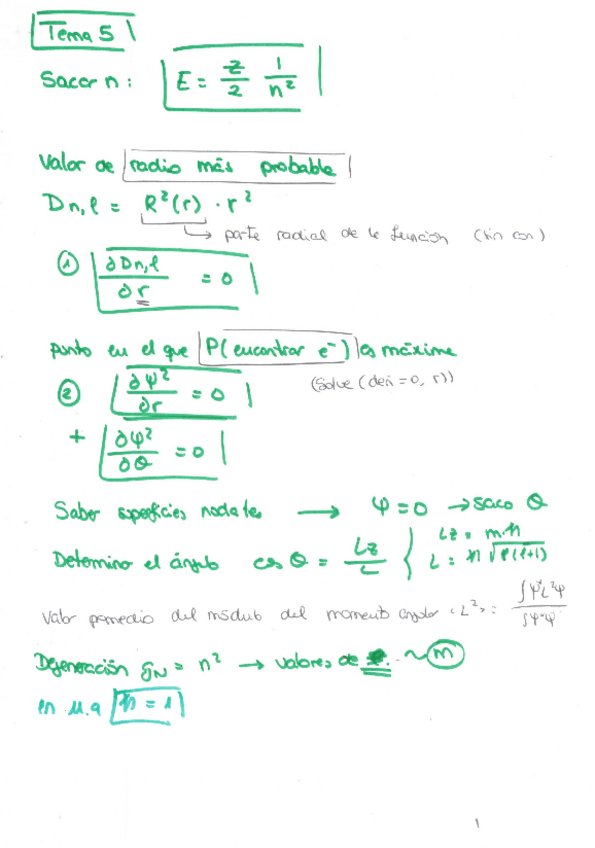 Tema 5
Sacar n: E = z/2 1/n²
Valor de radio más probable
Dn,ℓ = R²(r) · r²
↳ parte radial de la función (sin con)
① ∂Dn,ℓ/∂r = 0
punto en el que P(encontrar e⁻) es máxima
② ∂φ²/∂r = 0 (solve (deri = 0, r))
+ ∂φ²/∂θ = 0
Saber superficies nodales → φ = 0 → saco θ
Determino el ángulo cos θ = Lz/L { Lz = m·ħ
L = ħ √ℓ(ℓ+1)
Valor promedio del módulo del momento angular <L²> = ∫φ*L²φ/∫φ*φ
Degeneración gN = n² → valores de ~ m
en u.a ħ = 1
1